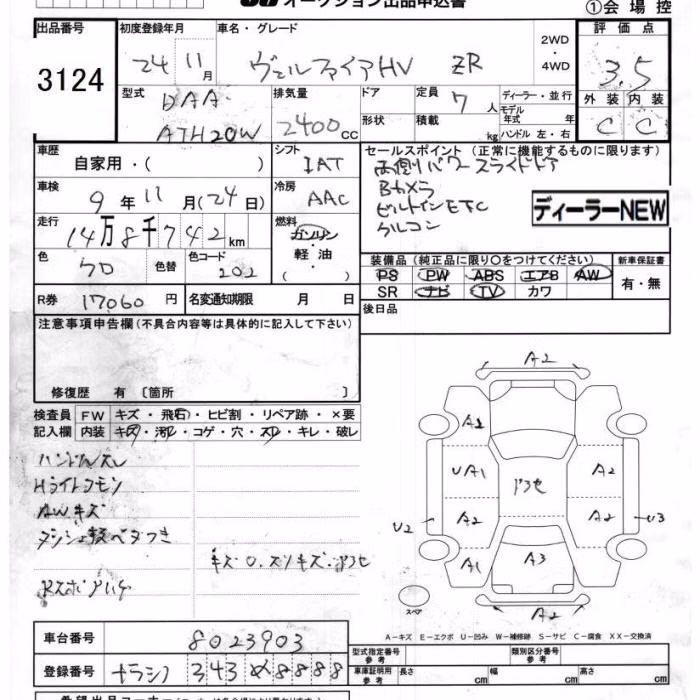 オークション出品申込書
①会場控
出品番号 初度登録年月 車名・グレード 2WD・4WD 評価点
3124 24 11月 ヴェルファイアHV ZR 3.5
型式 DAA ATH20W 排気量 2400cc ドア 形状 定員 7人 積載 kg ディーラー・並行 モデル年式 年 ハンドル 左・右 外装 内装
C C
車歴 自家用・( ) シフト IAT セールスポイント (正常に機能するものに限ります)
両側パワースライドドア
車検 9年11月(24日) 冷房 AAC Bカメラ
ビルトインETC
ディーラーNEW
走行 14万8千742km 燃料 ガソリン・軽油・( )
色 クロ 色替 色コード 202 装備品 (純正品に限り○をつけてください) 新車保証書
PS PW ABS エアB AW 有・無
SR ナビ TV カワ
R券 17060円 名変通知期限 月 日 後日品
注意事項申告欄 (不具合内容等は具体的に記入して下さい)
修復歴 有 〔箇所 〕
検査員 FW キズ・飛石・ヒビ割・リペア跡・×要
記入欄 内装 キズ・汚レ・コゲ・穴・スレ・キレ・破レ
ハンドルスレ
Hライトクモリ
AWキズ
A2
A2
UA1 ドラセ A2
A2 A2
U2 U3
A1 A3
スペア
A2
A-キズ E-エクボ U-凹み W-補修跡 S-サビ C-腐食 XX-交換済
車台番号 8023903 型式指定番号 参考 類別区分番号 参考
登録番号 343 8888 車庫証明用 参考 長さ cm 幅 cm 高さ cm